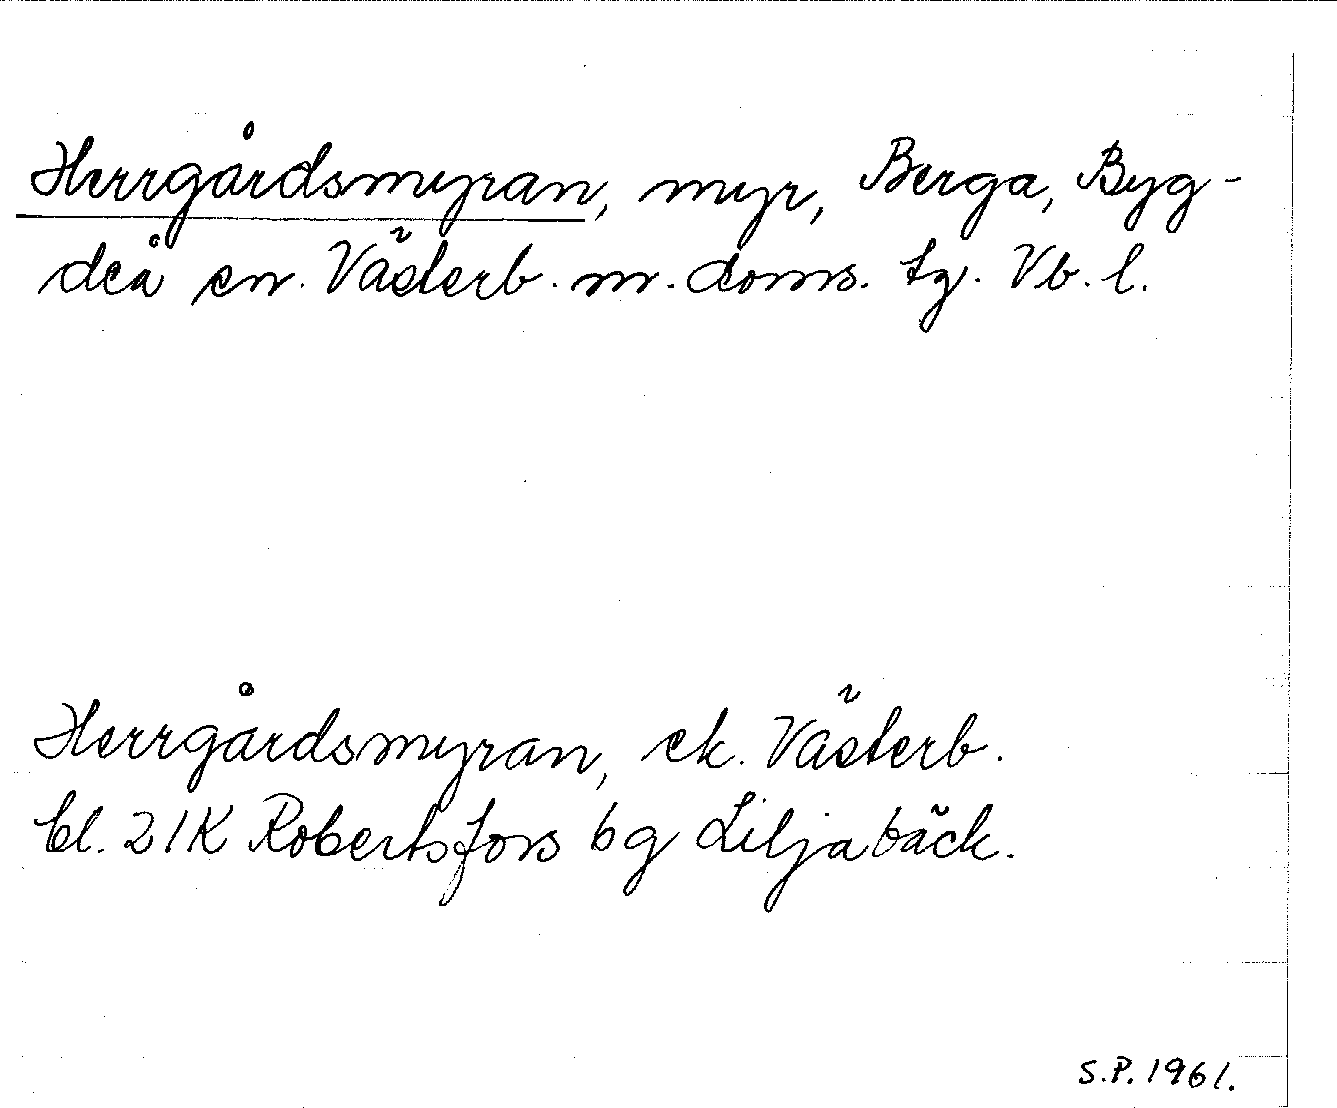 Herrgårdsmyran, myr, Berga, Byg-
deå sn. Västerb. m. doms. tg. Vb. l.
Herrgårdsmyran, ek. Västerb.
bl. 21K Robertsfors bg Liljabäck.
S.P. 1961.